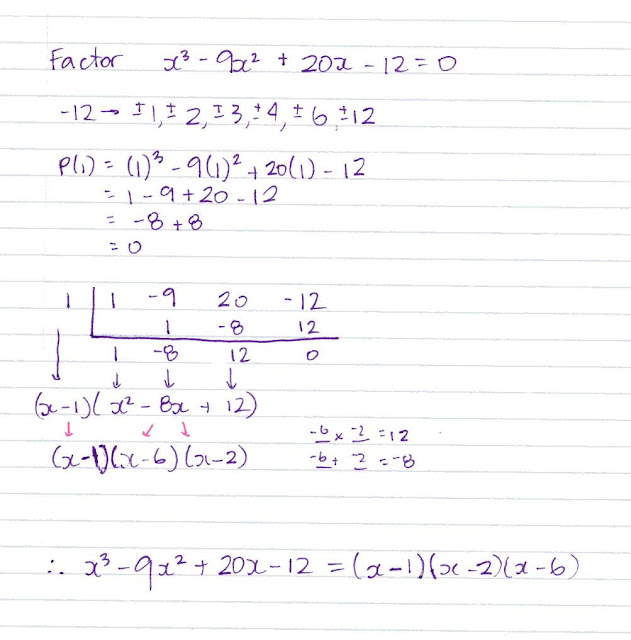 Factor x³ - 9x² + 20x - 12 = 0
-12 → ±1, ±2, ±3, ±4, ±6, ±12
P(1) = (1)³ - 9(1)² + 20(1) - 12
= 1 - 9 + 20 - 12
= -8 + 8
= 0
1 | 1 -9 20 -12
1 -8 12
1 -8 12 0
↓ ↓ ↓ ↓
(x-1)(x² - 8x + 12)
↓ ↙ ↓
-6 x -2 = 12
(x-1)(x-6)(x-2)
-6 + -2 = -8
∴ x³ - 9x² + 20x - 12 = (x-1)(x-2)(x-6)